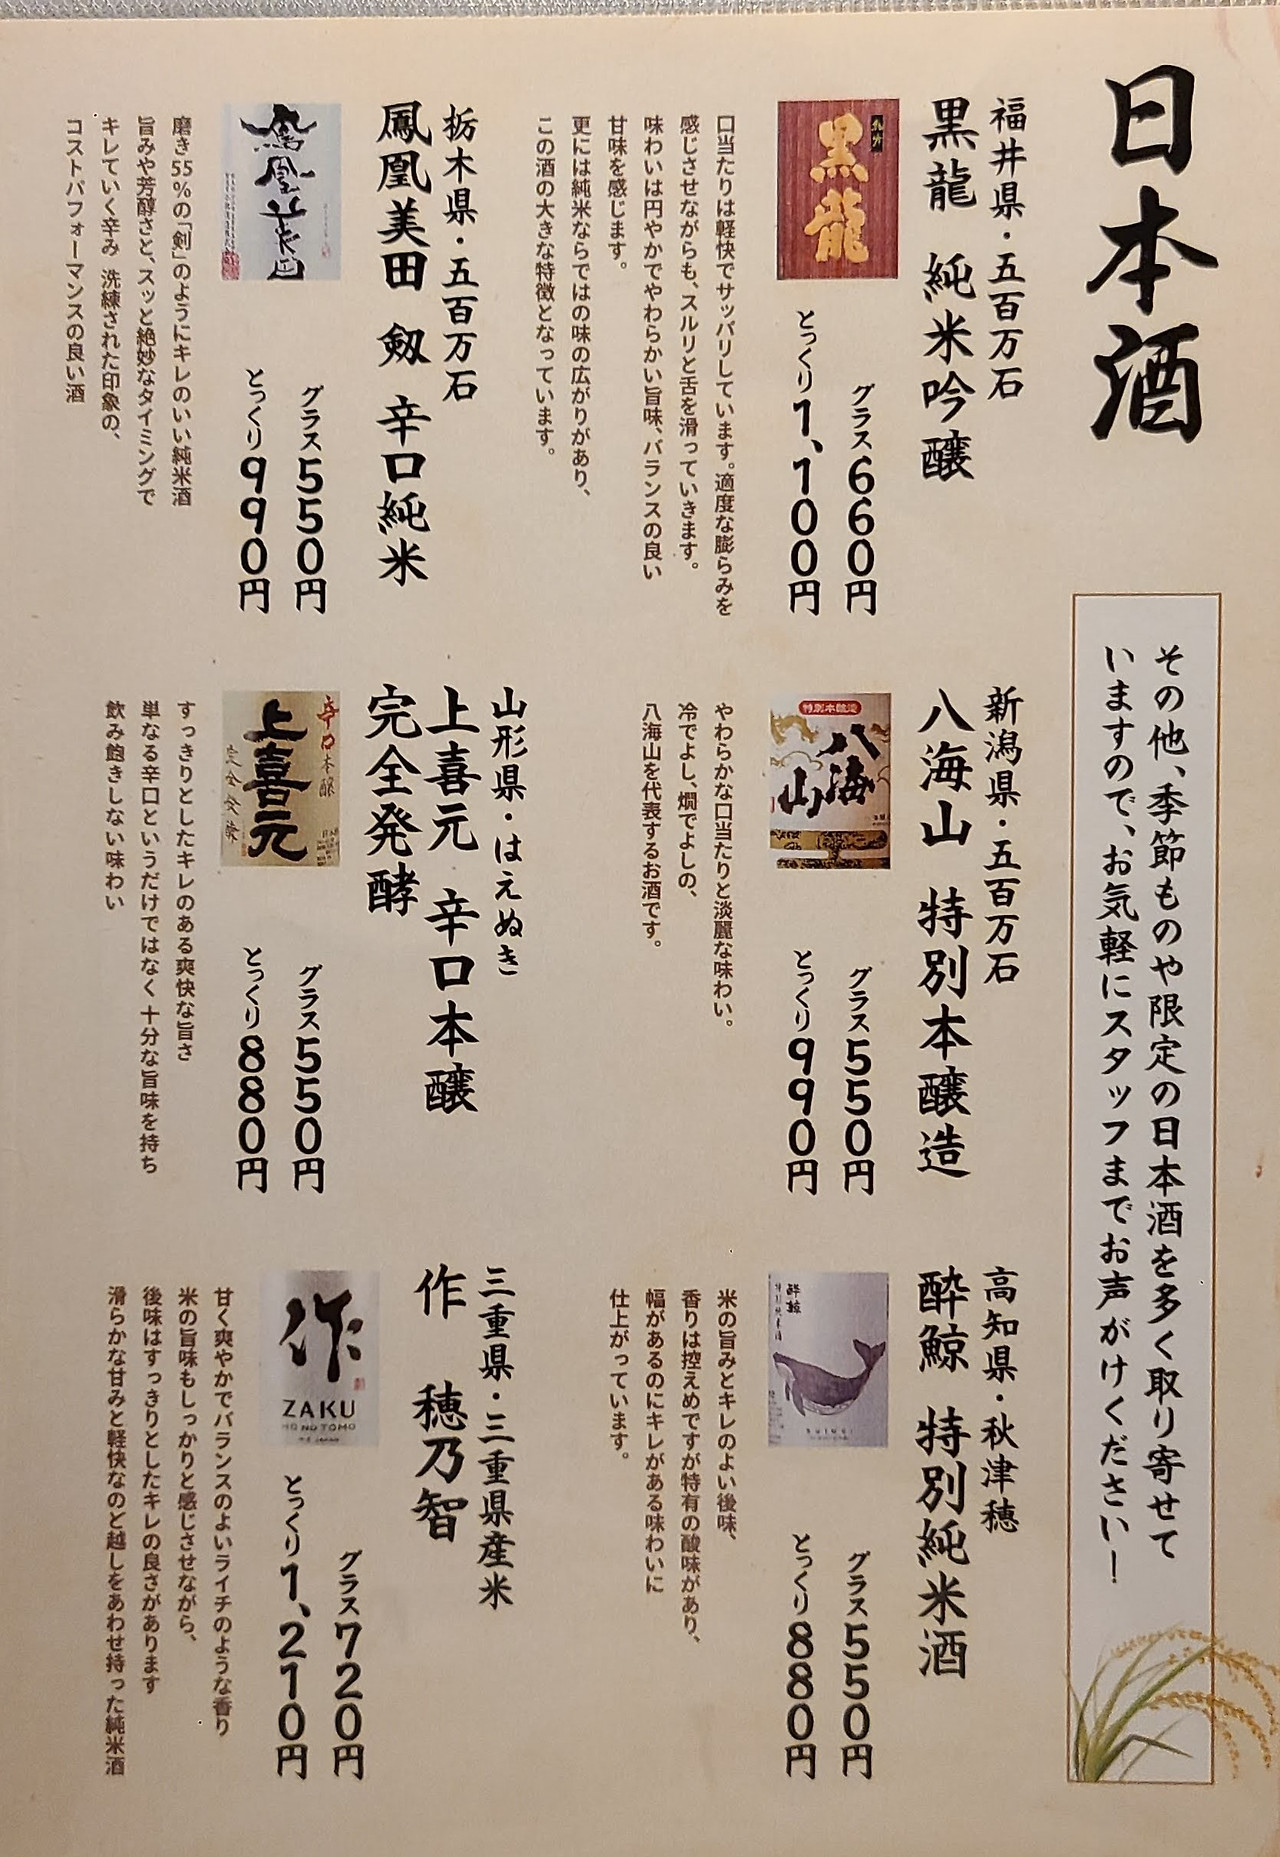 日本酒
その他、季節ものや限定の日本酒を多く取り寄せて
いますので、お気軽にスタッフまでお声がけください!
福井県・五百万石
黒龍 純米吟醸
黒龍
グラス660円
とっくり1,100円
口当たりは軽快でサッパリしています。適度な膨らみを
感じさせながらも、スルリと舌を滑っていきます。
味わいは円やかでやわらかい旨味、バランスの良い
甘味を感じます。
更には純米ならではの味の広がりがあり、
この酒の大きな特徴となっています。
新潟県・五百万石
八海山 特別本醸造
特別本醸造
八海山
グラス550円
とっくり990円
やわらかな口当たりと淡麗な味わい。
冷でよし、燗でよしの、
八海山を代表するお酒です。
高知県・秋津穂
酔鯨 特別純米酒
酔鯨
特別純米酒
SUIGEI
グラス550円
とっくり880円
米の旨みとキレのよい後味、
香りは控えめですが特有の酸味があり、
幅があるのにキレがある味わいに
仕上がっています。
栃木県・五百万石
鳳凰美田 剱 辛口純米
鳳凰美田
グラス550円
とっくり990円
磨き55%の「剣」のようにキレのいい純米酒
旨みや芳醇さと、スッと絶妙なタイミングで
キレていく辛み 洗練された印象の、
コストパフォーマンスの良い酒
山形県・はえぬき
上喜元 辛口本醸
完全発酵
辛口本醸
上喜元
完全発酵
グラス550円
とっくり880円
すっきりとしたキレのある爽快な旨さ
単なる辛口というだけではなく十分な旨味を持ち
飲み飽きしない味わい
三重県・三重県産米
作 穂乃智
作
ZAKU
HO NO TOMO
グラス720円
とっくり1,210円
甘く爽やかでバランスのよいライチのような香り
米の旨味もしっかりと感じさせながら、
後味はすっきりとしたキレの良さがあります
滑らかな甘みと軽快なのど越しをあわせ持った純米酒